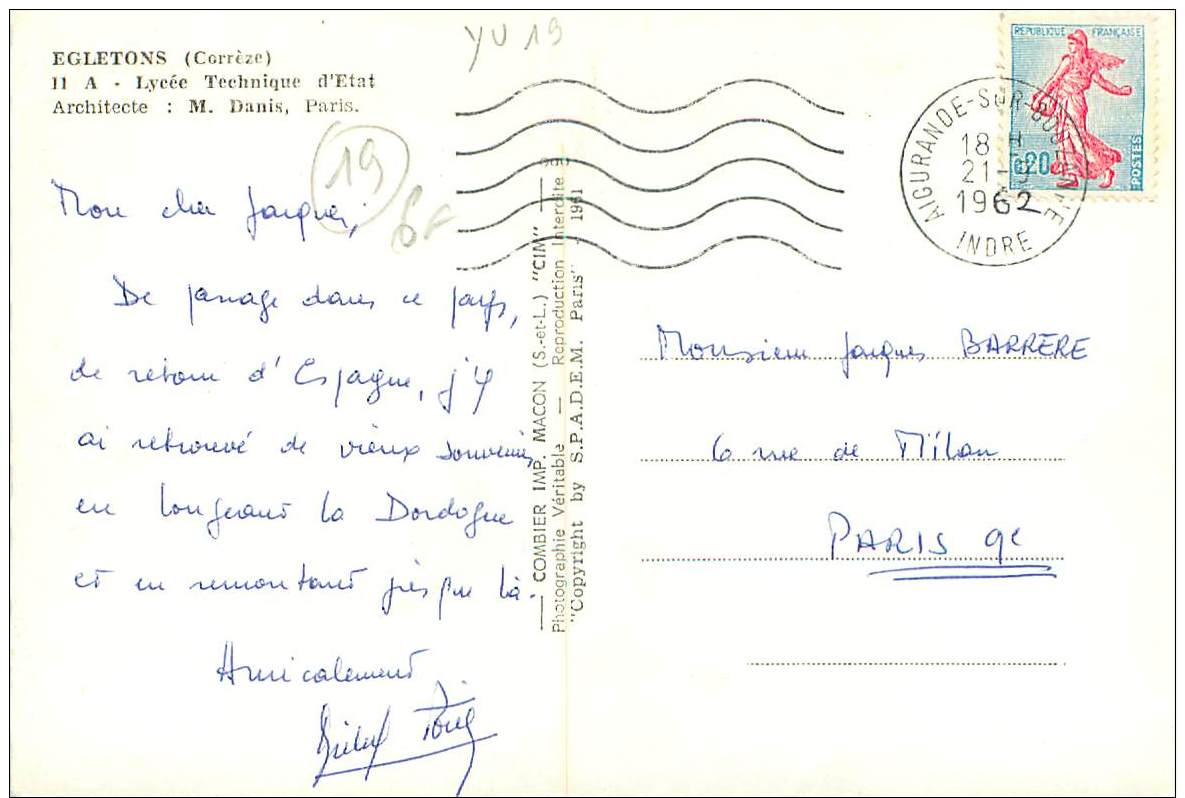 EGLETONS (Corrèze)
11 A - Lycée Technique d'Etat
Architecte : M. Danis, Paris.
YU 19
19
6F
Mon cher Jacques,
De passage dans ce pays,
de retour d'Espagne, j'y
ai retrouvé de vieux souvenirs,
en longeant la Dordogne
et en remontant jusque là.
Amicalement
— COMBIER IMP. MACON (S.-et-L.) "CIM" —
Photographie Véritable — Reproduction Interdite
"Copyright by S.P.A.D.E.M. Paris" - 1961
REPUBLIQUE FRANÇAISE
0,20
POSTES
AIGURANDE-SUR-BOUZANNE
18 H
21-
1962
INDRE
Monsieur Jacques BARRÈRE
6 rue de Milan
PARIS 9e